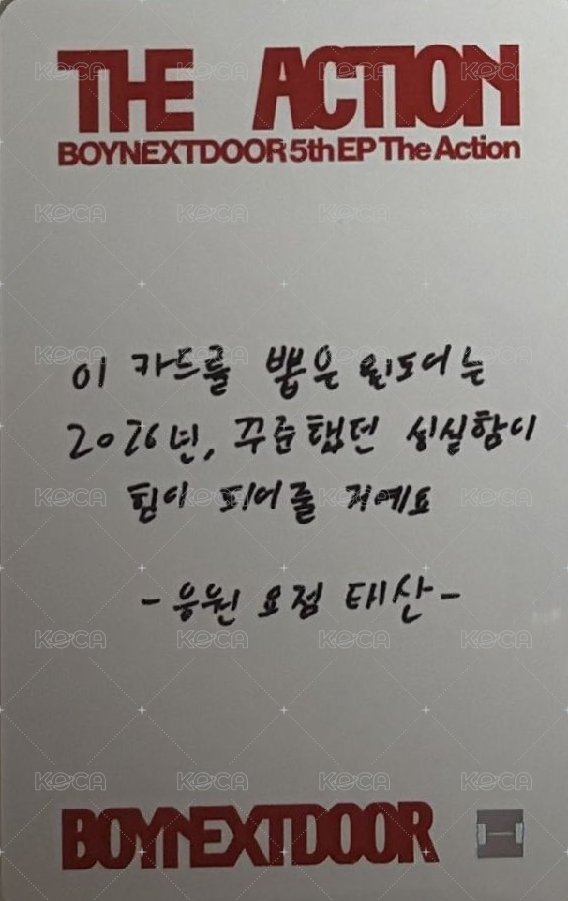 THE ACTION
BOYNEXTDOOR 5th EP The Action
이 카드를 뽑은 원도어는
2026년, 꾸준했던 성실함이
힘이 되어줄 거예요
- 응원 요정 태산 -
BOYNEXTDOOR
KOCA